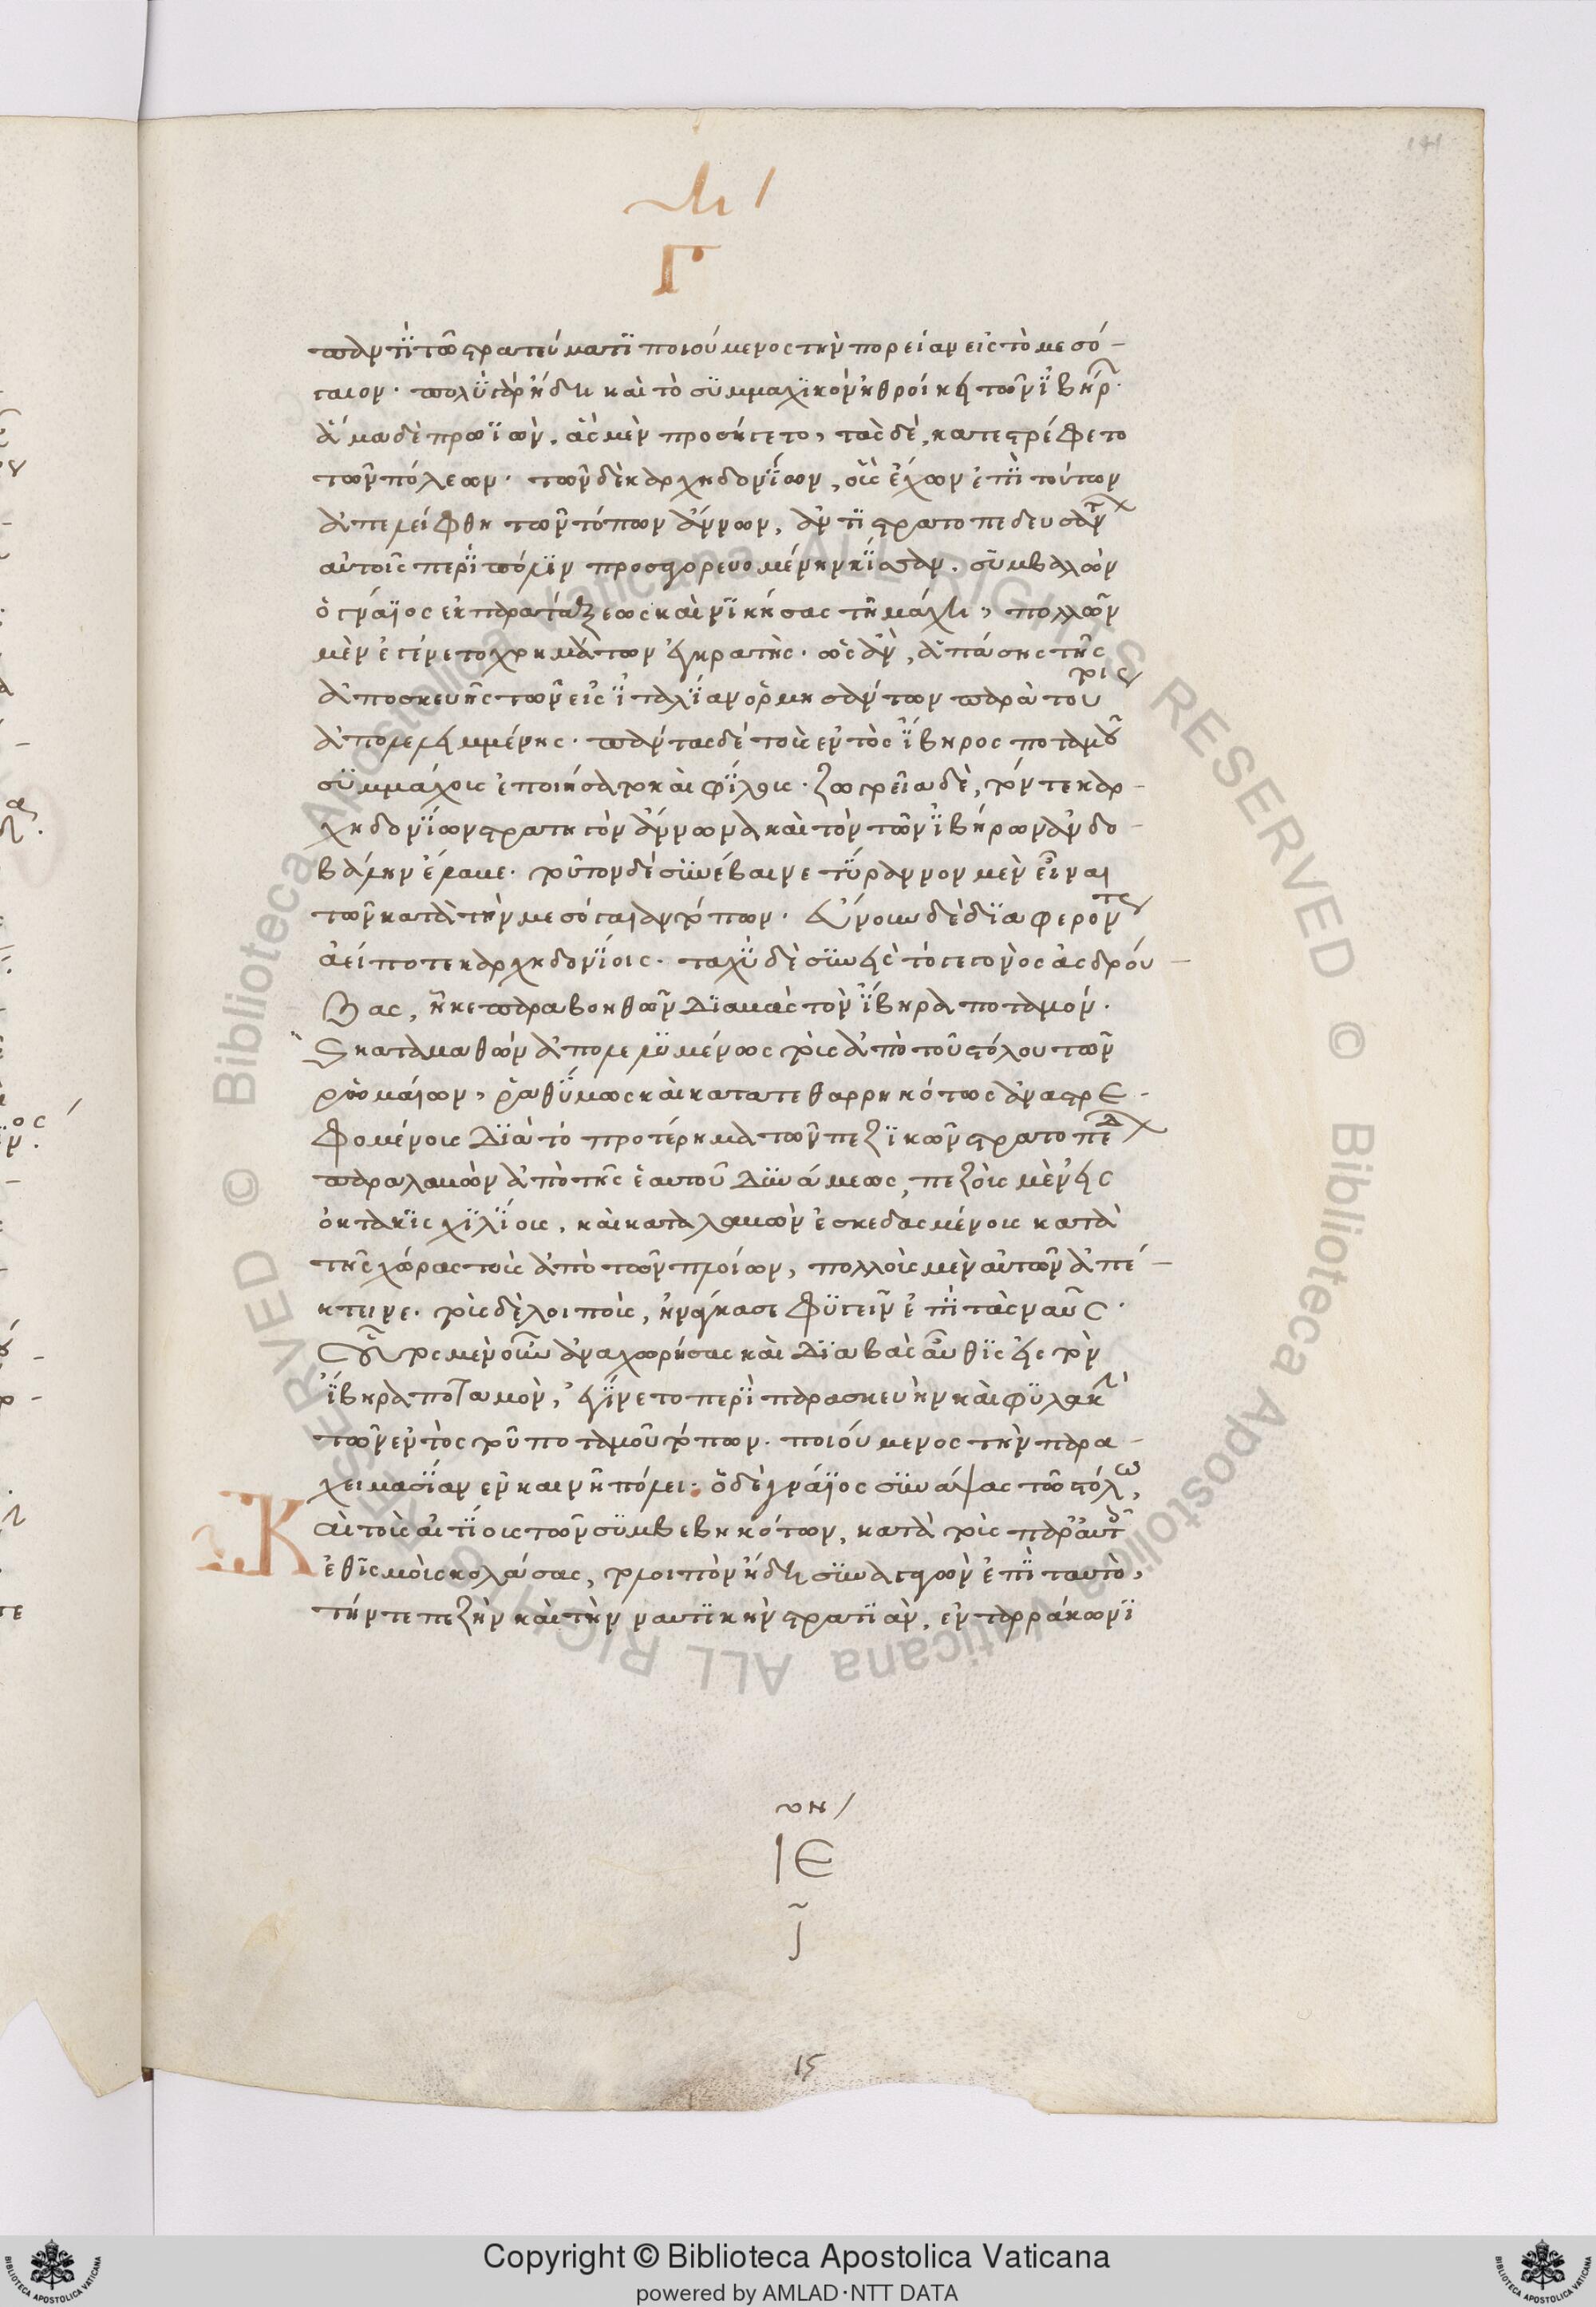 Γ
παντὶ τῶ στρατεύματι ποιούμενος τὴν πορείαν εἰς τὸ μεσό-
γαιον· πολὺ γὰρ ἤδη καὶ τὸ συμμαχικὸν ἠθροίκει τῶν ἰβήρ
ἅμα δὲ προϊὼν, ἃς μὲν προσήγετο, τὰς δὲ, κατεστρέφετο
τῶν πόλεων· τῶν δὲ καρχηδονίων, οὓς ἔχων ἐπὶ τούτων
ἀπελείφθη τῶν τόπων ἄννων, ἀντιστρατοπεδευσάντ
αὐτοῖς περὶ πόλιν προσαγορευομένην κίσσαν. συμβαλὼν
ὁ γνάϊος ἐκ παρατάξεως καὶ νικήσας τῆ μάχη, πολλῶν
μὲν ἐγένετο χρημάτων ἐγκρατὴς· ὡς ἂν, ἁπάσης τῆς
ἀποσκευῆς τῶν εἰς ἰταλίαν ὁρμησάντων παρὰ τούτοις
ἀπολελειμμένης· πάντας δὲ τοὺς ἐντὸς ἴβηρος ποταμοῦ
συμμάχους ἐποιήσατο καὶ φίλους· ζωγρεῖα δὲ, τόν τε καρ-
χηδονίων στρατηγὸν ἄννωνα καὶ τὸν τῶν ἰβήρων ἀνδο-
βάλην ἔλαβε· τοῦτον δὲ συνέβαινε τύραννον μὲν εἶναι
τῶν κατὰ τὴν μεσόγαιαν τόπων· εὔνουν δὲ διαφερόντως
ἀεί ποτε καρχηδονίοις· ταχὺ δὲ συνεὶς τὸ γεγονὸς ἀσδρού-
βας, ἧκε παραβοηθῶν διαβὰς τὸν ἴβηρα ποταμόν·
καὶ καταμαθὼν ἀπολελυμένως τοὺς ἀπὸ τοῦ στόλου τῶν
ῥωμαίων, ῥαθύμως καὶ κατατεθαρρηκότως ἀναστρε-
φομένους διὰ τὸ προτέρημα τῶν πεζικῶν στρατοπέδ
παραλαβὼν ἀπὸ τῆς ἑαυτοῦ δυνάμεως, πεζοὺς μὲν εἰς
ὀκτακισχιλίους, καὶ καταλαβὼν ἐσκεδασμένους κατὰ
τῆς χώρας τοὺς ἀπὸ τῶν πλοίων, πολλοὺς μὲν αὐτῶν ἀπέ-
κτεινε· τοὺς δὲ λοιποὺς, ἠνάγκασε φυγεῖν ἐπὶ τὰς ναῦς·
οὗτος μὲν οὖν ἀναχωρήσας καὶ διαβὰς αὖθις εἰς τὸν
ἴβηρα ποταμὸν, ἐγίνετο περὶ παρασκευὴν καὶ φυλακὴ
τῶν ἐντὸς τοῦ ποταμοῦ τόπων· ποιούμενος τὴν παρα-
χειμασίαν ἐν καινῆ πόλει· ὁ δὲ γνάϊος συνάψας τῶ στόλω,
Καὶ τοὺς αἰτίους τῶν συμβεβηκότων, κατὰ τοὺς παρ' αὐτοῖς
ἐθισμοὺς κολάσας, τολοιπὸν ἤδη συναγαγὼν ἐπὶ ταυτὸ,
τήν τε πεζὴν καὶ τὴν ναυτικὴν στρατιὰν, ἐν ταρράκωνι
ΙΕ
15
Copyright © Biblioteca Apostolica Vaticana
powered by AMLAD·NTT DATA